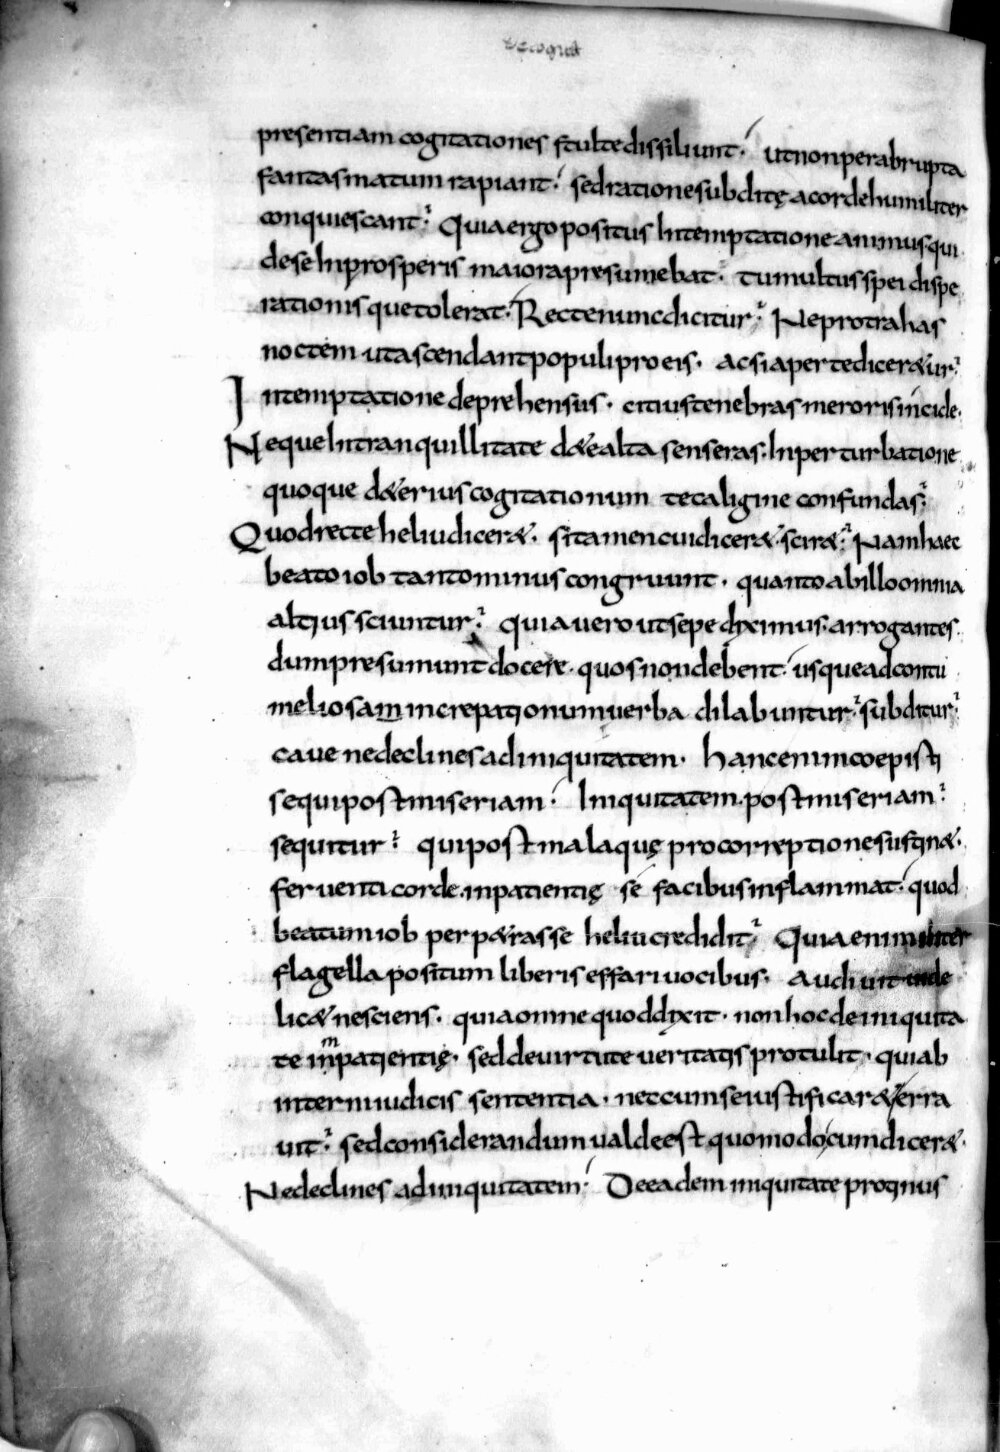 presentiam cogitationes stulte dissiliunt. ut non per abrupta
fantasmatum rapiant. sed ratione subditę a corde humiliter
conquiescant. Quia ergo positus In temptatione animus qui
de se In prosperis maiora presumebat. tumultus spei dispe
rationisque tolerat. Recte nunc dicitur. Ne protrahas
noctem ut ascendant populi pro eis. ac si aperte diceretur.
In temptatione deprehensus. citius tenebras meroris incide.
Neque In tranquillitate de te alta senseras. In perturbatione
quoque deterius cogitationum te caligine confundas.
Quod recte heliu diceret. si tamen cui diceret. sciret. Nam haec
beato iob tanto minus congruunt. quanto ab illo omnia
altius sciuntur. quia uero ut sepe diximus. arrogantes.
dum presumunt docere. quos non debent. usque ad contu
meliosam increpationum uerba dilabuntur. subditur.
caue ne declines ad iniquitatem. hanc enim coepisti
sequi post miseriam. Iniquitatem. post miseriam.
sequitur. qui post mala quę pro correptione sustinet.
feruenti corde. inpatientię se facibus inflammat. quod
beatum iob perpetrasse heliu credidit. Quia enim
flagella positum liberis effari uocibus. audiuit
licet nesciens. quia omne quod dixit. non hoc de iniquita
te inpatientię. sed de uirtute ueritatis protulit. qui ab
interni iudicis sententia. nec cum se iustificaret erra
uit. sed considerandum ualde est quomodo cum diceret.
Ne declines ad iniquitatem. De eadem iniquitate protinus